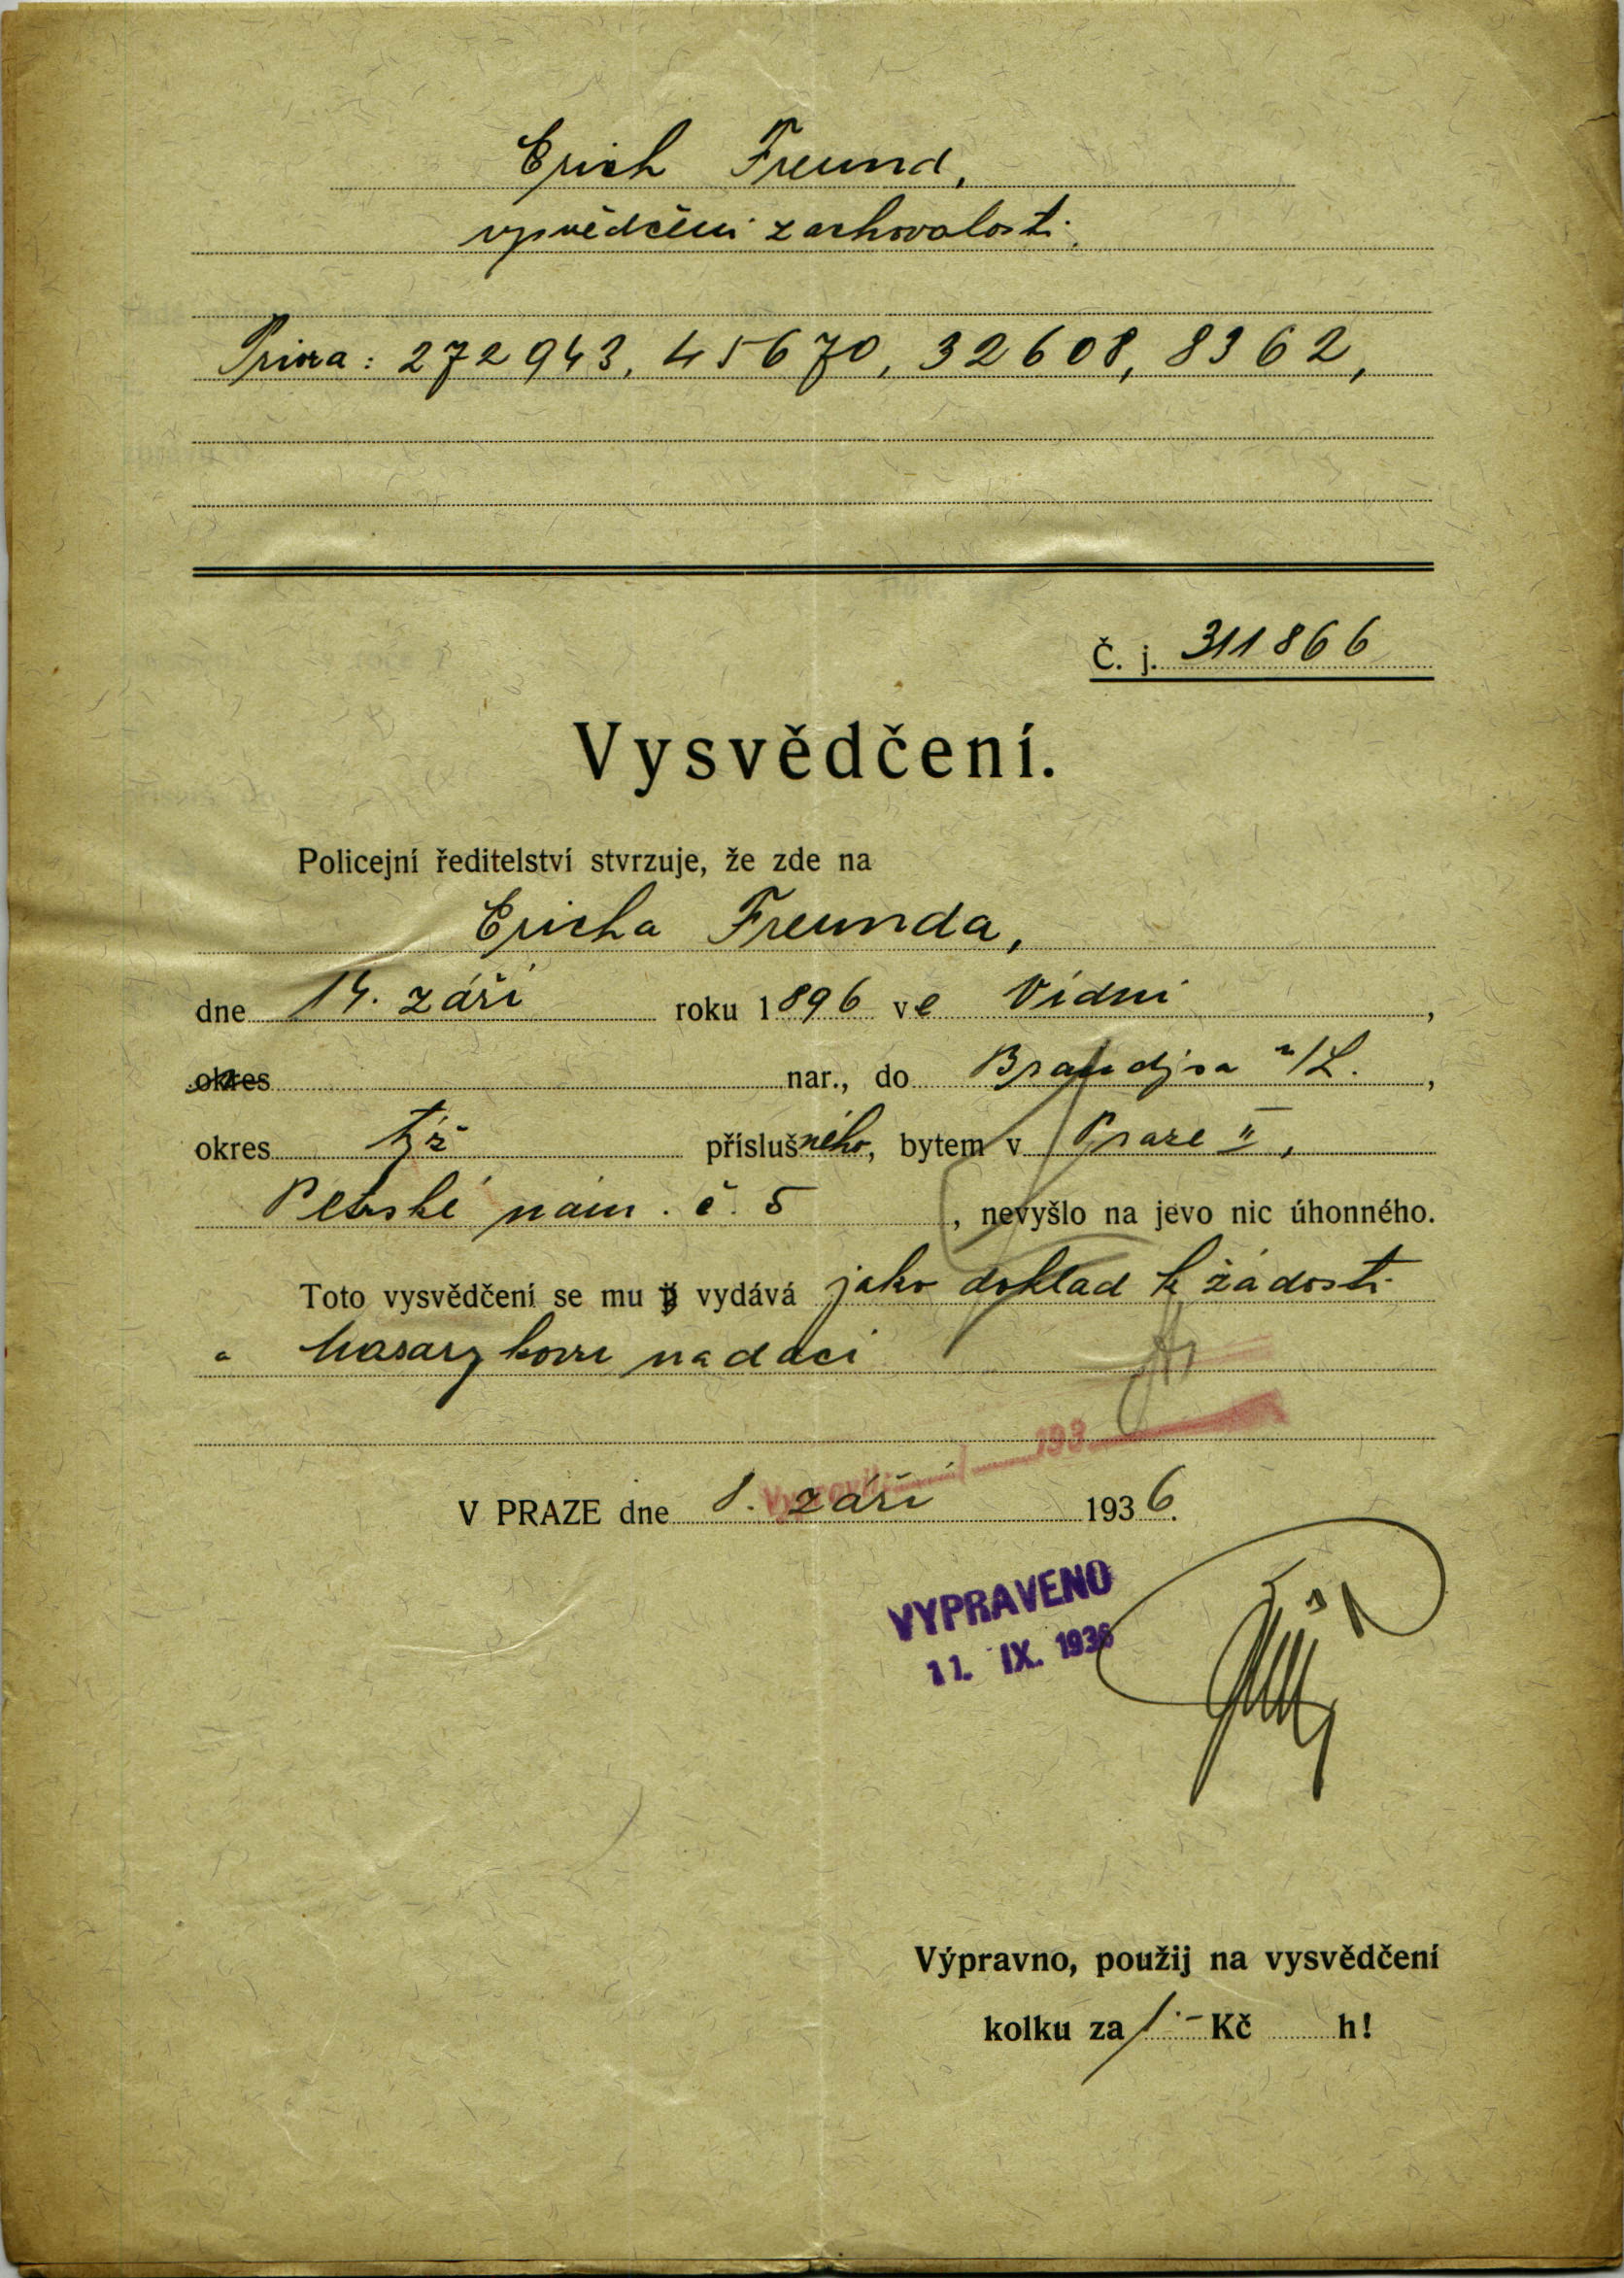 Erich Freund,
vysvědčení zachovalosti.
Priora: 272943, 45670, 32608, 8362,
Č. j. 311866
Vysvědčení.
Policejní ředitelství stvrzuje, že zde na
Ericha Freunda,
dne 14. září roku 1896 ve Vídni,
okres nar., do Brandýsa n/L.,
okres týž příslušného, bytem v Praze II,
Petrské nám. č. 5, nevyšlo na jevo nic úhonného.
Toto vysvědčení se mu vydává jako doklad k žádosti
Masarykově nadaci
193
V PRAZE dne 8. září 1936.
VYPRAVENO
11. IX. 1936
Výpravno, použij na vysvědčení
kolku za 1.- Kč h!